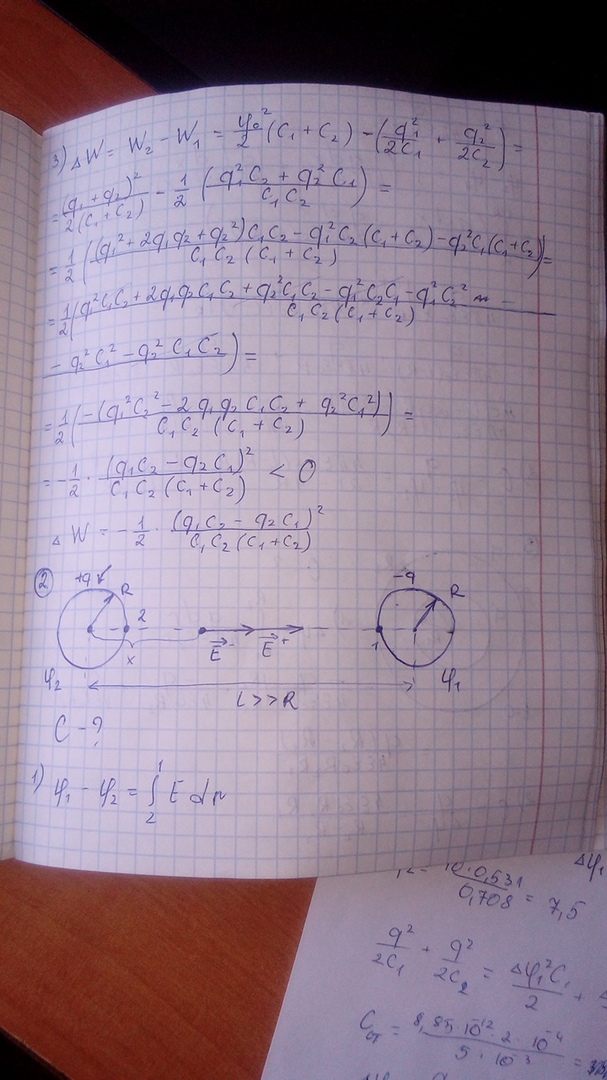 3) ΔW = W₂ − W₁ = φ₀²/2 (C₁ + C₂) − (q₁²/2C₁ + q₂²/2C₂) =
= (q₁ + q₂)²/2(C₁ + C₂) − 1/2 (q₁²C₂ + q₂²C₁/C₁C₂) =
= 1/2 ((q₁² + 2q₁q₂ + q₂²)C₁C₂ − q₁²C₂(C₁ + C₂) − q₂²C₁(C₁ + C₂)/C₁C₂(C₁ + C₂)) =
= 1/2 (q₁²C₁C₂ + 2q₁q₂C₁C₂ + q₂²C₁C₂ − q₁²C₂C₁ − q₁²C₂² −/C₁C₂(C₁ + C₂)
− q₂²C₁² − q₂²C₁C₂) =
= 1/2 (−(q₁²C₂² − 2q₁q₂C₁C₂ + q₂²C₁²)/C₁C₂(C₁ + C₂)) =
= −1/2 · (q₁C₂ − q₂C₁)²/C₁C₂(C₁ + C₂) < 0
ΔW = −1/2 · (q₁C₂ − q₂C₁)²/C₁C₂(C₁ + C₂)
② +q R 2 −q R
x E⃗⁻ E⃗⁺ 1
φ₂ φ₁
L >> R
C − ?
1) φ₁ − φ₂ = ∫₂¹ E dr
10·0,531/0,708 = 7,5
Δφ₁
q²/2C₁ + q²/2C₂ = Δφ₁²C₁/2 +
= 8,85·10⁻¹²·2·10⁻⁴/5·10⁻³ =